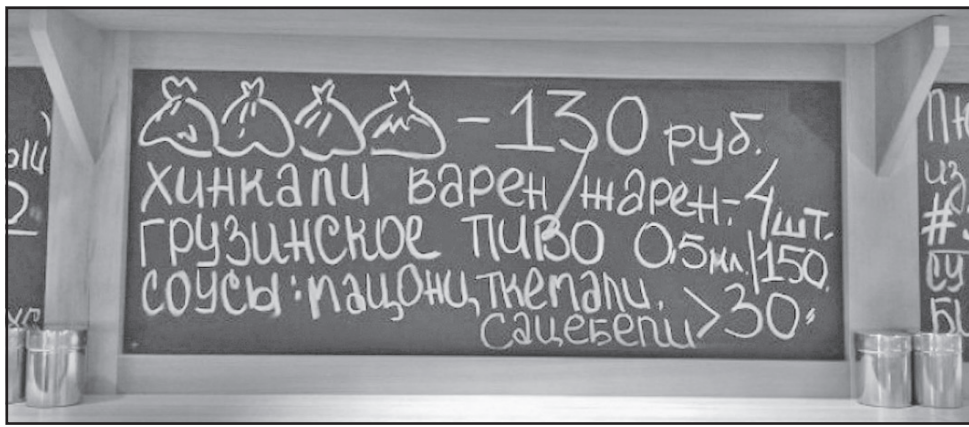 - 130 руб.
ХИНКАЛИ ВАРЕН/ЖАРЕН - 4 шт.
ГРУЗИНСКОЕ ПИВО 0,5 мл.|150.
СОУСЫ: МАЦОНИ, ТКЕМАЛИ,
САЦЕБЕЛИ > 30"